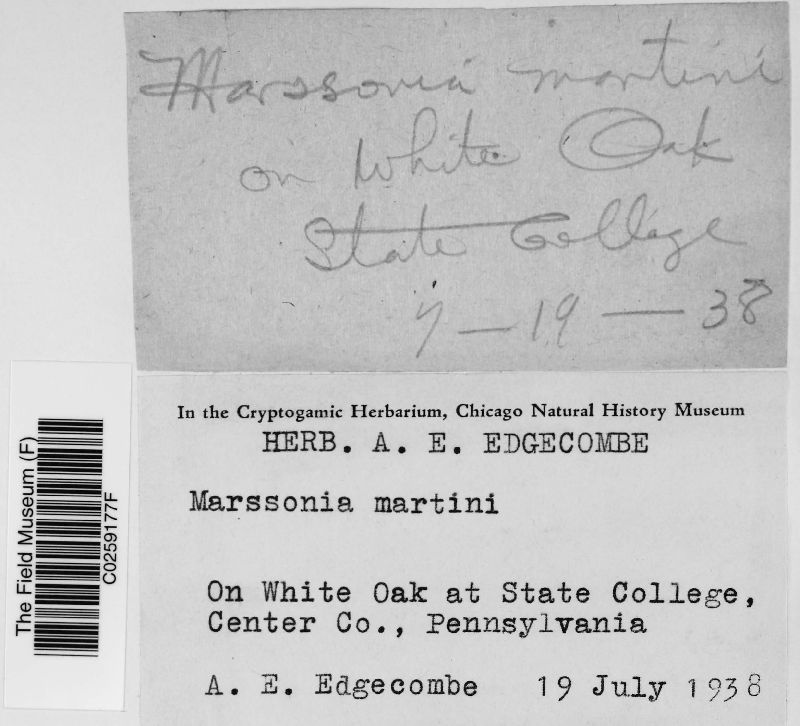 Marssonia martini
on White Oak
State College
7-19-38
In the Cryptogamic Herbarium, Chicago Natural History Museum
HERB. A. E. EDGECOMBE
Marssonia martini
On White Oak at State College,
Center Co., Pennsylvania
A. E. Edgecombe 19 July 1938
The Field Museum (F)
C0259177F